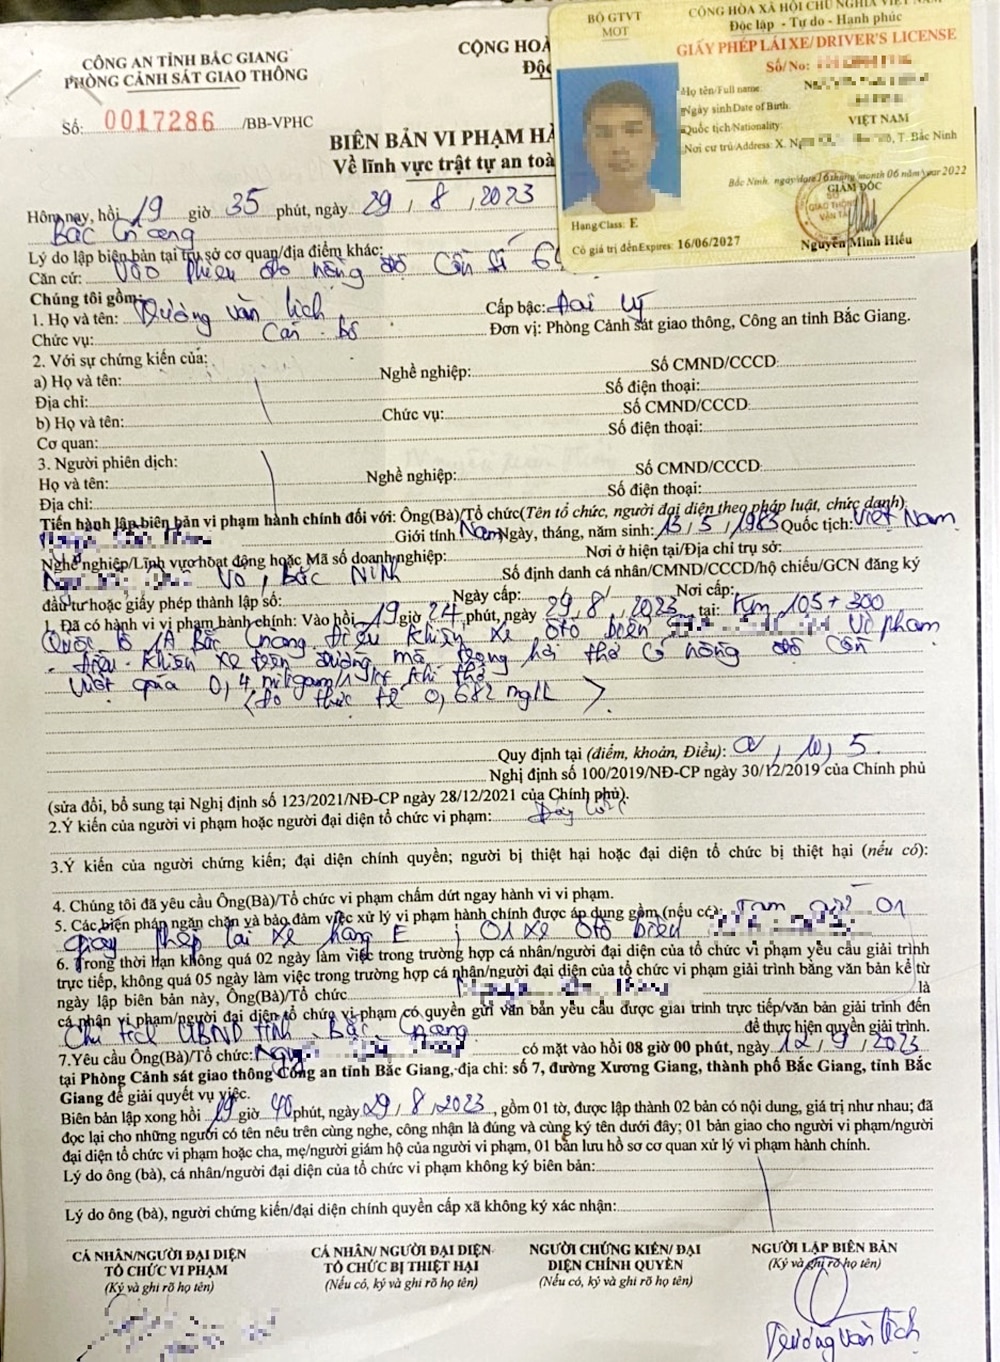 CÔNG AN TỈNH BẮC GIANG
PHÒNG CẢNH SÁT GIAO THÔNG
Số: 0017286 /BB-VPHC
CỘNG HOÀ
Độc
BIÊN BẢN VI PHẠM HÀ
Về lĩnh vực trật tự an toà
BỘ GTVT
MOT
CỘNG HÒA XÃ HỘI CHỦ NGHĨA VIỆT NAM
Độc lập - Tự do - Hạnh phúc
GIẤY PHÉP LÁI XE/DRIVER'S LICENSE
Số/No:
Họ tên/Full name:
Ngày sinh/Date of Birth:
Quốc tịch/Nationality: VIỆT NAM
Nơi cư trú/Address: X. T. Bắc Ninh
Bắc Ninh, ngày/date 16 tháng/month 06 năm/year 2022
GIÁM ĐỐC
SỞ GIAO THÔNG VẬN TẢI
Nguyễn Minh Hiếu
Hạng/Class: E
Có giá trị đến/Expires: 16/06/2027
Hôm nay, hồi 19 giờ 35 phút, ngày 29, 8, 2023
Bắc Giang
Lý do lập biên bản tại trụ sở cơ quan/địa điểm khác:
Căn cứ: Vào phiếu đo nồng độ cồn số
Chúng tôi gồm:
1. Họ và tên: Dương Văn Lịch Cấp bậc: Đại úy
Chức vụ: Cán bộ Đơn vị: Phòng Cảnh sát giao thông, Công an tỉnh Bắc Giang.
2. Với sự chứng kiến của:
a) Họ và tên: Nghề nghiệp: Số CMND/CCCD:
Địa chỉ: Số điện thoại:
b) Họ và tên: Chức vụ: Số CMND/CCCD
Cơ quan: Số điện thoại:
3. Người phiên dịch:
Họ và tên: Nghề nghiệp: Số CMND/CCCD:
Địa chỉ: Số điện thoại:
Tiến hành lập biên bản vi phạm hành chính đối với: Ông(Bà)/Tổ chức(Tên tổ chức, người đại diện theo pháp luật, chức danh)
Giới tính Nam Ngày, tháng, năm sinh: 13, 5, 1983 Quốc tịch: Việt Nam
Nghề nghiệp/Lĩnh vực hoạt động hoặc Mã số doanh nghiệp: Nơi ở hiện tại/Địa chỉ trụ sở:
Võ, Bắc Ninh Số định danh cá nhân/CMND/CCCD/hộ chiếu/GCN đăng ký
đầu tư hoặc giấy phép thành lập số: Ngày cấp: Nơi cấp:
1. Đã có hành vi vi phạm hành chính: Vào hồi 19 giờ 24 phút, ngày 29, 8, 2023 tại: Km 105+300
Quốc lộ 1A Bắc Giang điều khiển xe ôtô biển Vi phạm
- Điều khiển xe trên đường mà trong hơi thở có nồng độ cồn
vượt quá 0,4 miligam/1 lít khí thở
(đo thực tế 0,682 mg/l)
Quy định tại (điểm, khoản, Điều): a, 10, 5.
Nghị định số 100/2019/NĐ-CP ngày 30/12/2019 của Chính phủ
(sửa đổi, bổ sung tại Nghị định số 123/2021/NĐ-CP ngày 28/12/2021 của Chính phủ).
2.Ý kiến của người vi phạm hoặc người đại diện tổ chức vi phạm:
3.Ý kiến của người chứng kiến; đại diện chính quyền; người bị thiệt hại hoặc đại diện tổ chức bị thiệt hại (nếu có):
4. Chúng tôi đã yêu cầu Ông(Bà)/Tổ chức vi phạm chấm dứt ngay hành vi vi phạm.
5. Các biện pháp ngăn chặn và bảo đảm việc xử lý vi phạm hành chính được áp dụng gồm (nếu có): Tạm giữ 01
giấy phép lái xe hạng E ; 01 xe ôtô biển
6. Trong thời hạn không quá 02 ngày làm việc trong trường hợp cá nhân/người đại diện của tổ chức vi phạm yêu cầu giải trình
trực tiếp, không quá 05 ngày làm việc trong trường hợp cá nhân/người đại diện của tổ chức vi phạm giải trình bằng văn bản kể từ
ngày lập biên bản này, Ông(Bà)/Tổ chức là
cá nhân vi phạm/người đại diện tổ chức vi phạm có quyền gửi văn bản yêu cầu được giải trình trực tiếp/văn bản giải trình đến
Chủ tịch UBND tỉnh Bắc Giang để thực hiện quyền giải trình.
7.Yêu cầu Ông(Bà)/Tổ chức: có mặt vào hồi 08 giờ 00 phút, ngày 12, 9, 2023
tại Phòng Cảnh sát giao thông Công an tỉnh Bắc Giang, địa chỉ: số 7, đường Xương Giang, thành phố Bắc Giang, tỉnh Bắc
Giang để giải quyết vụ việc.
Biên bản lập xong hồi 19 giờ 40 phút, ngày 29, 8, 2023, gồm 01 tờ, được lập thành 02 bản có nội dung, giá trị như nhau; đã
đọc lại cho những người có tên nêu trên cùng nghe, công nhận là đúng và cùng ký tên dưới đây; 01 bản giao cho người vi phạm/người
đại diện tổ chức vi phạm hoặc cha, mẹ/người giám hộ của người vi phạm, 01 bản lưu hồ sơ cơ quan xử lý vi phạm hành chính.
Lý do ông (bà), cá nhân/người đại diện của tổ chức vi phạm không ký biên bản:
Lý do ông (bà), người chứng kiến/đại diện chính quyền cấp xã không ký xác nhận:
CÁ NHÂN/NGƯỜI ĐẠI DIỆN
TỔ CHỨC VI PHẠM
(Ký và ghi rõ họ tên)
CÁ NHÂN/ NGƯỜI ĐẠI DIỆN
TỔ CHỨC BỊ THIỆT HẠI
(Nếu có, ký và ghi rõ họ tên)
NGƯỜI CHỨNG KIẾN/ ĐẠI
DIỆN CHÍNH QUYỀN
(Nếu có, ký và ghi rõ họ tên)
NGƯỜI LẬP BIÊN BẢN
(Ký và ghi rõ họ tên)
Dương Văn Lịch